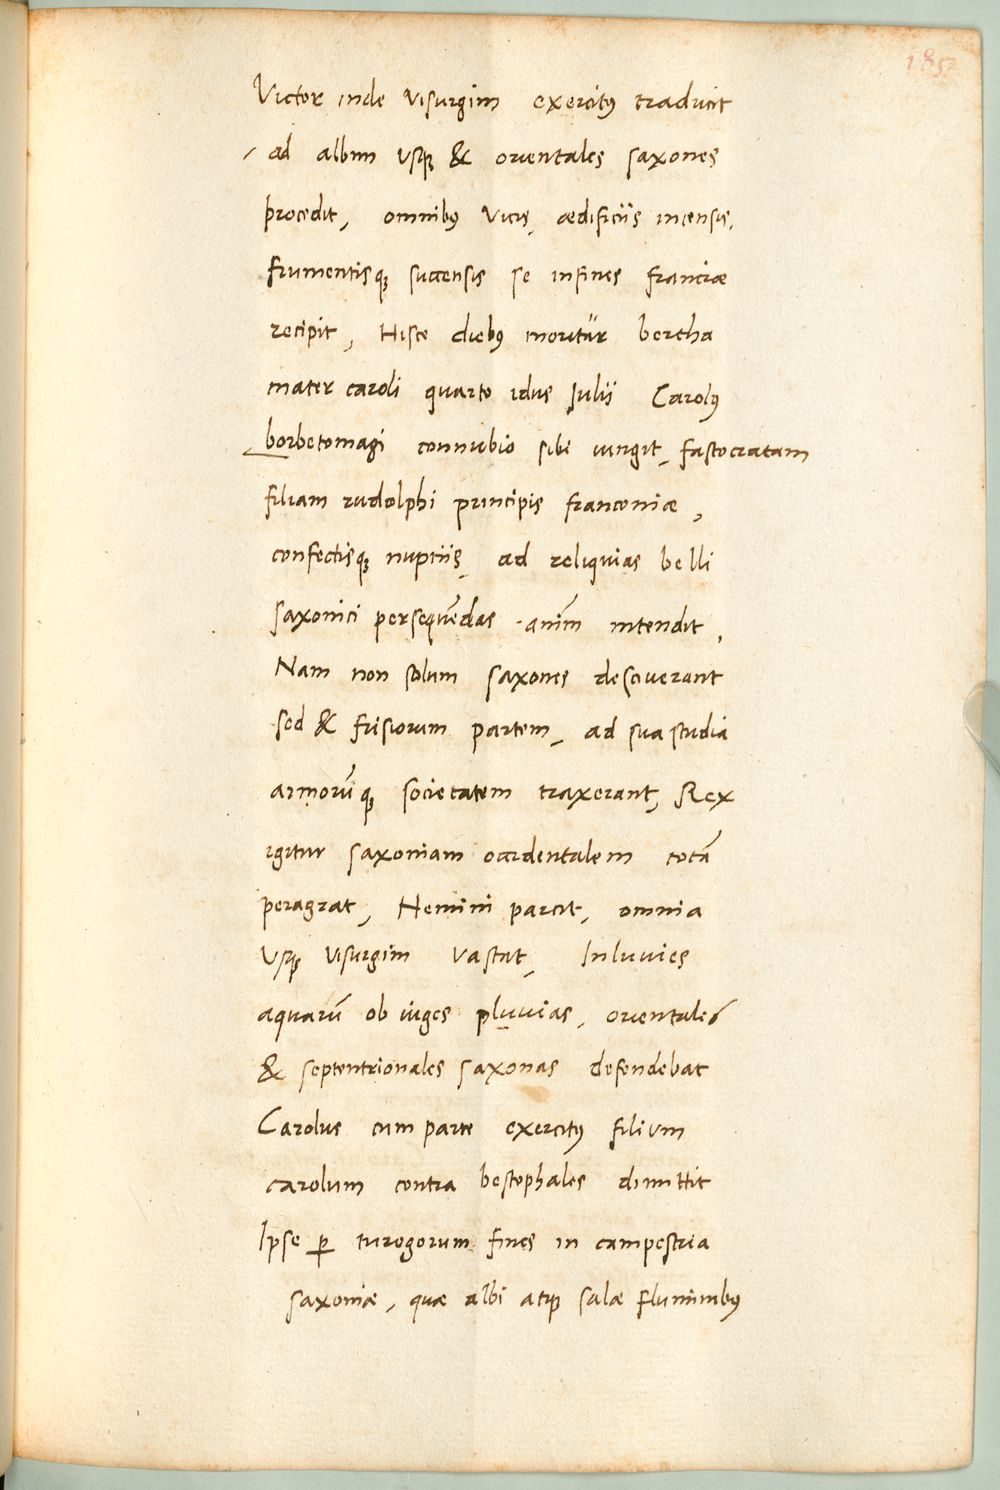 185
Victor inde visurgim exercitꝰ traducit
ad albim usqꝫ & orientales saxones
procedit, omnibꝰ vicis, ædificiis incensis,
frumentisqꝫ succensis se in fines franciæ
recipit, Hisce diebꝰ moritur bertha
mater caroli quarto idus Julii Carolꝰ
borbetomagi connubio sibi iungit, fastocratam
filiam rudolphi principis franconiæ,
confectisqꝫ nuptiis, ad reliquias belli
saxonici persequēdas anim̄ intendit,
Nam non solum saxones desciverant
sed & frisiorum partem, ad sua studia
armorūqꝫ societatem traxerant, Rex
igitur saxoniam occidentalem totā
peragrat, Nemini parcit, omnia
usqꝫ visurgim vastat, Inluvies
aquarū ob iuges pluvias, orientales
& septentrionales saxonas defendebat
Carolus cum parte exercitꝰ filium
carolum contra bestophales dimittit
Ipse ꝑ turogorum fines in campestria
saxoniæ, quæ albi atqꝫ salæ fluminibꝰ